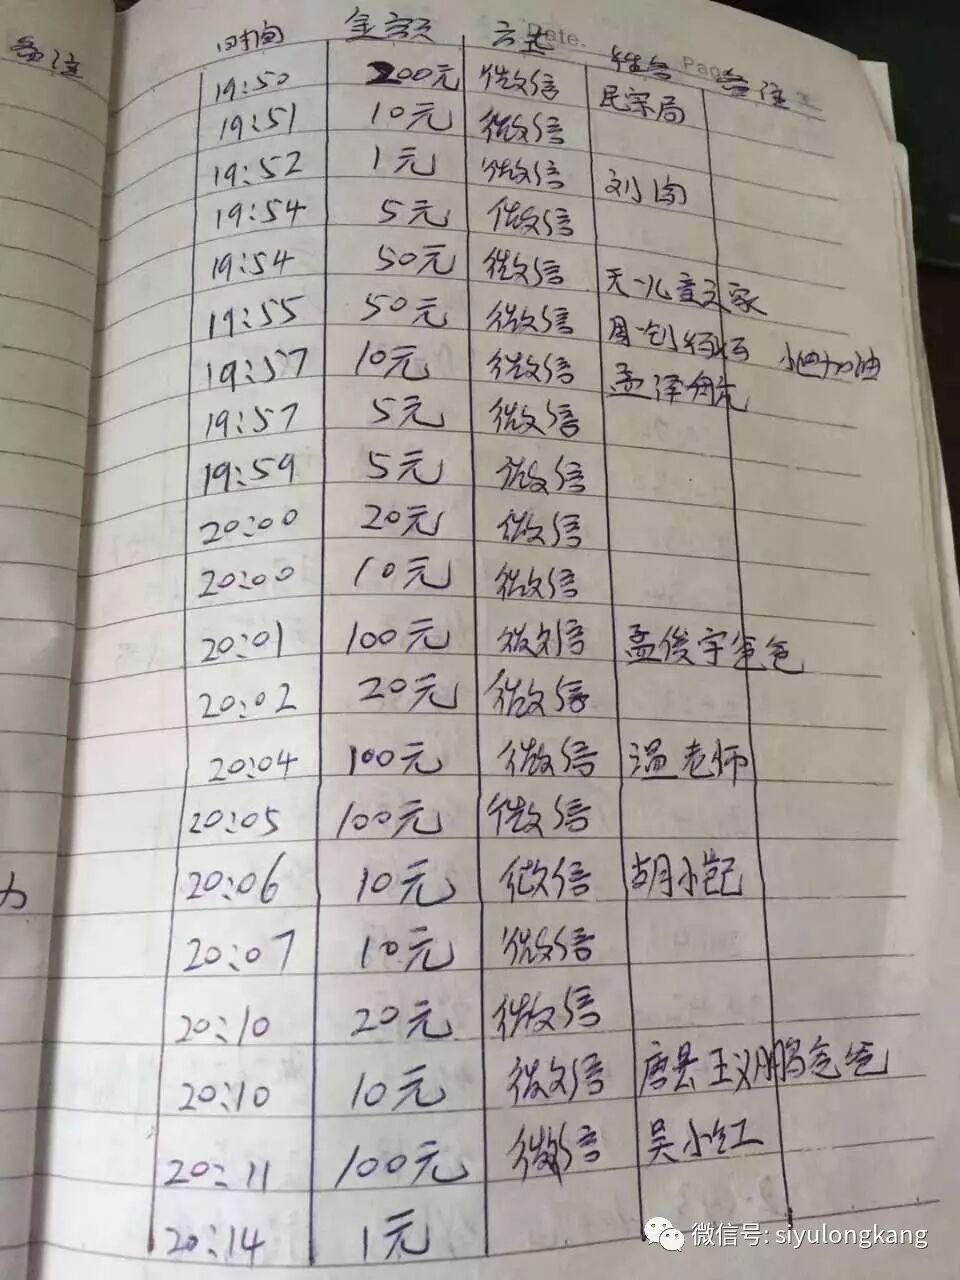 备注
时间 金额 方式 Date. 姓名 Pag 备注
19:50 200元 微信 民宗局
19:51 10元 微信
19:52 1元 微信 刘陶
19:54 5元 微信
19:54 50元 微信 天一儿童之家
19:55 50元 微信 周 小迪加油
19:57 10元 微信 孟泽航
19:57 5元 微信
19:59 5元 微信
20:00 20元 微信
20:00 10元 微信
20:01 100元 微信 孟俊宇爸爸
20:02 20元 微信
20:04 100元 微信 温老师
20:05 100元 微信
20:06 10元 微信 胡小
20:07 10元 微信
20:10 20元 微信
20:10 10元 微信 唐县王义鹏爸爸
力
20:11 100元 微信 吴小红
20:14 1元
微信号: siyulongkang